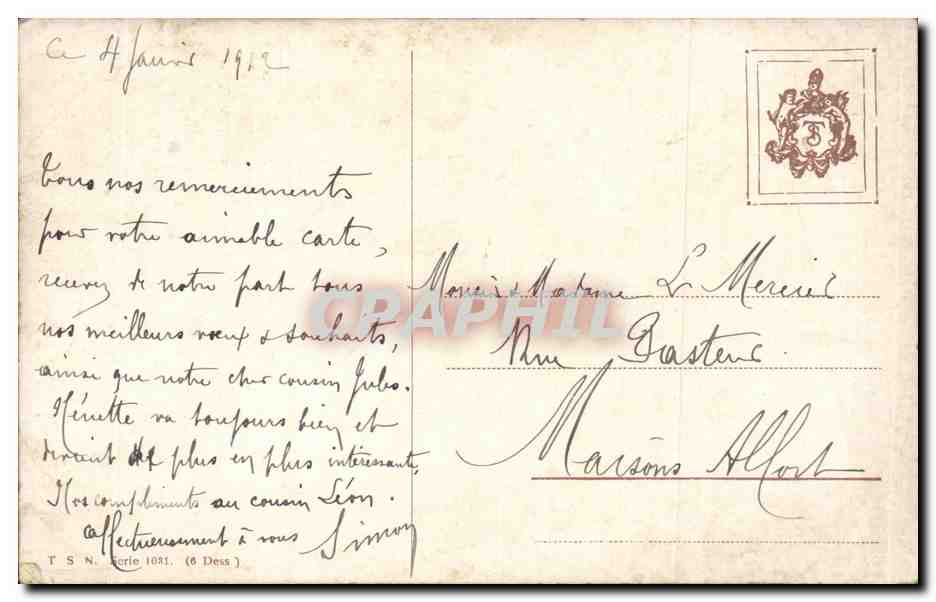 Ce 4 Janvier 1912
Tous nos remerciements
pour votre aimable carte,
recevez de notre part tous
nos meilleurs vœux & souhaits,
ainsi que notre cher cousin Jules.
va toujours bien et
devient de plus en plus intéressante,
Nos compliments au cousin Léon.
affectueusement à vous Simon
T S N. Serie 1081. (6 Dess)
TS
Monsieur & Madame L Mercier
Rue Pasteur
Maisons Alfort
CRAPHIL